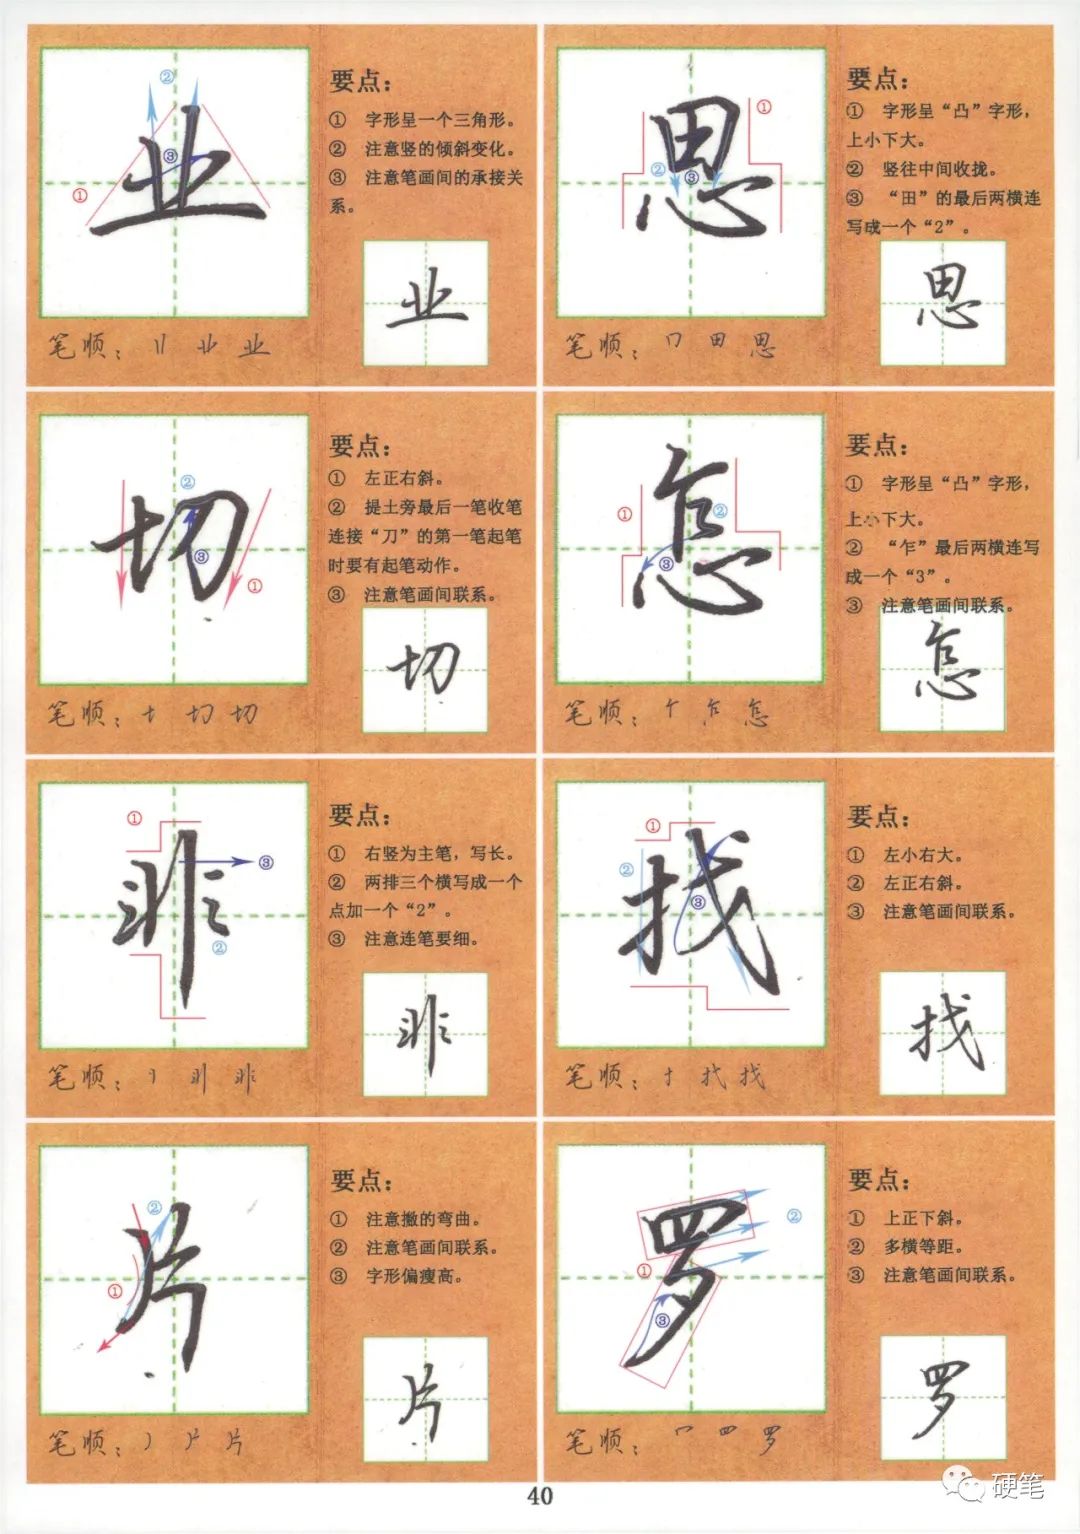 业
②
③
①
要点：
① 字形呈一个三角形。
② 注意竖的倾斜变化。
③ 注意笔画间的承接关
系。
业
笔顺：
业
思
①
②
③
要点：
① 字形呈“凸”字形，
上小下大。
② 竖往中间收拢。
③ “田”的最后两横连
写成一个“2”。
思
笔顺：
田 思
切
②
③
①
要点：
① 左正右斜。
② 提土旁最后一笔收笔
连接“刀”的第一笔起笔
时要有起笔动作。
③ 注意笔画间联系。
切
笔顺：
切
怎
①
②
③
要点：
① 字形呈“凸”字形，
上小下大。
② “乍”最后两横连写
成一个“3”。
③ 注意笔画间联系。
怎
笔顺：
乍 怎
非
①
③
②
要点：
① 右竖为主笔，写长。
② 两排三个横写成一个
点加一个“2”。
③ 注意连笔要细。
非
笔顺：
非
找
①
②
③
要点：
① 左小右大。
② 左正右斜。
③ 注意笔画间联系。
找
笔顺：
找
片
②
①
要点：
① 注意撇的弯曲。
② 注意笔画间联系。
③ 字形偏瘦高。
片
笔顺：
片
罗
②
①
③
要点：
① 上正下斜。
② 多横等距。
③ 注意笔画间联系。
罗
笔顺：
罒 罗
40
硬笔